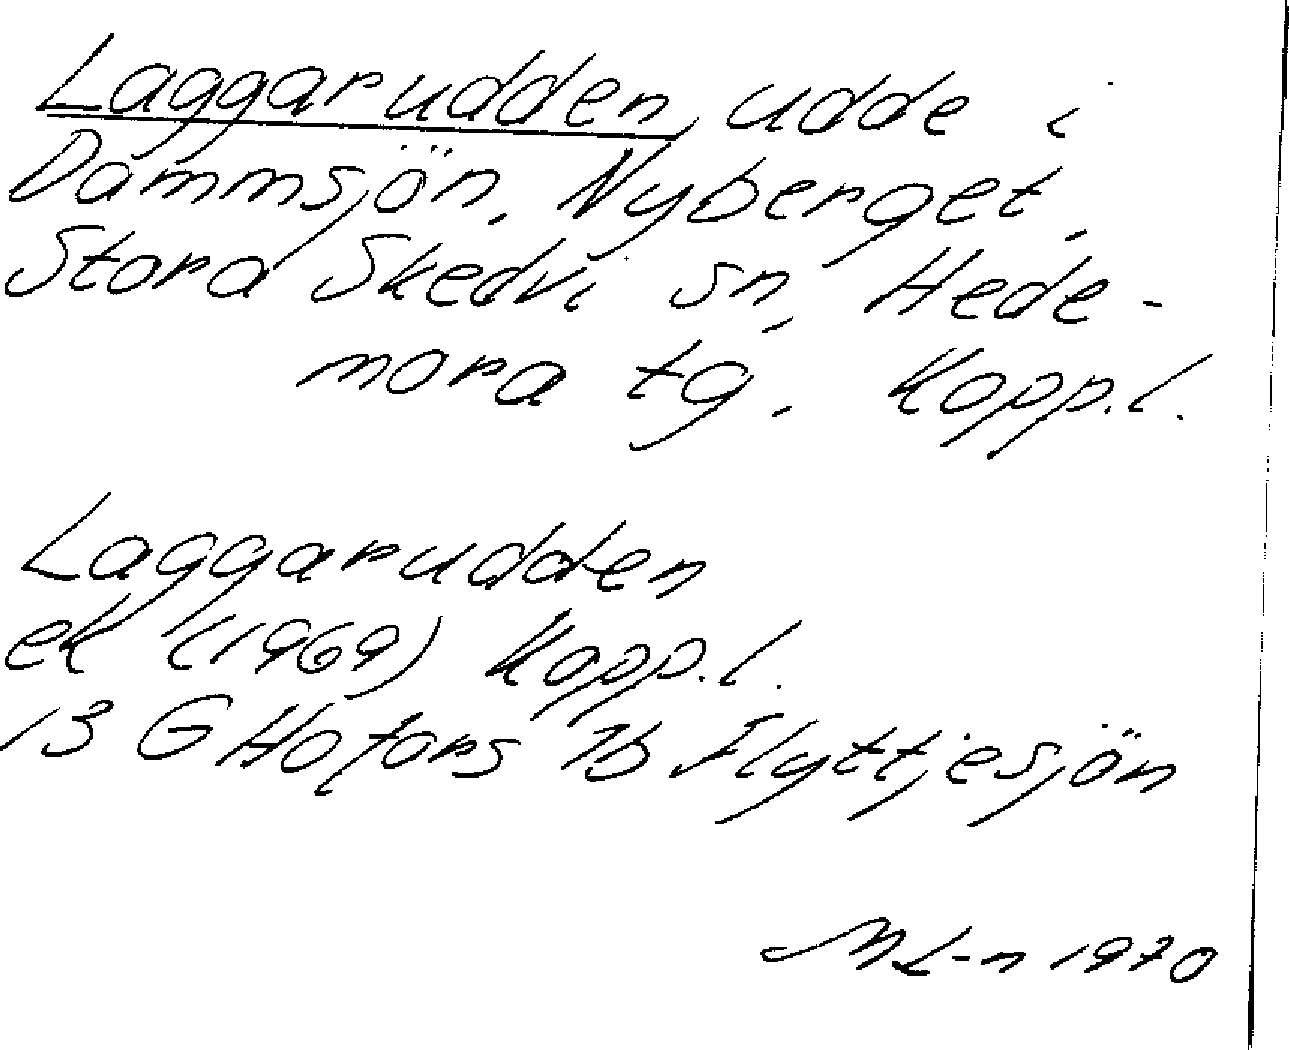 Laggarudden, udde i
Dammsjön, Nyberget,
Stora Skedvi sn, Hede-
mora tg, Kopp.l.
Laggarudden
ek (1969) Kopp.l.
13 G Hofors 1b Flyttjesjön
ML-n 1970